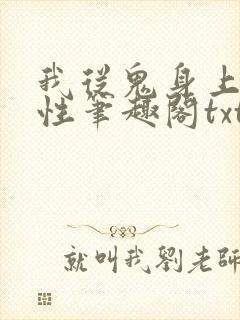 我從鬼身上
性筆趣閣txt
就叫我劉老師